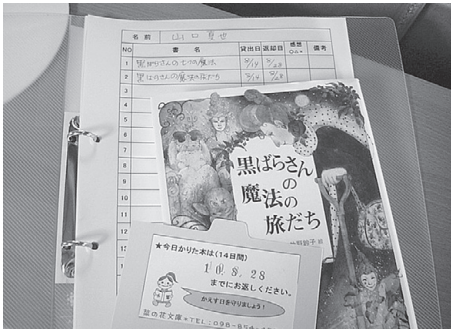 名前 山口
NO 書名 貸出日 返却日 感想 備考
1 黒ばらさんの七つの魔法 8/14 8/28
2 黒ばらさんの魔法の旅だち 8/14 8/28
3
4
5
6
7
8
9
10
11
12
黒ばらさん
の
魔法の
旅だち
★今日かりた本は(14日間)
10.8.28
までにお返しください。
かえす日を守りましょう!
菜の花文庫★TEL:098-854-